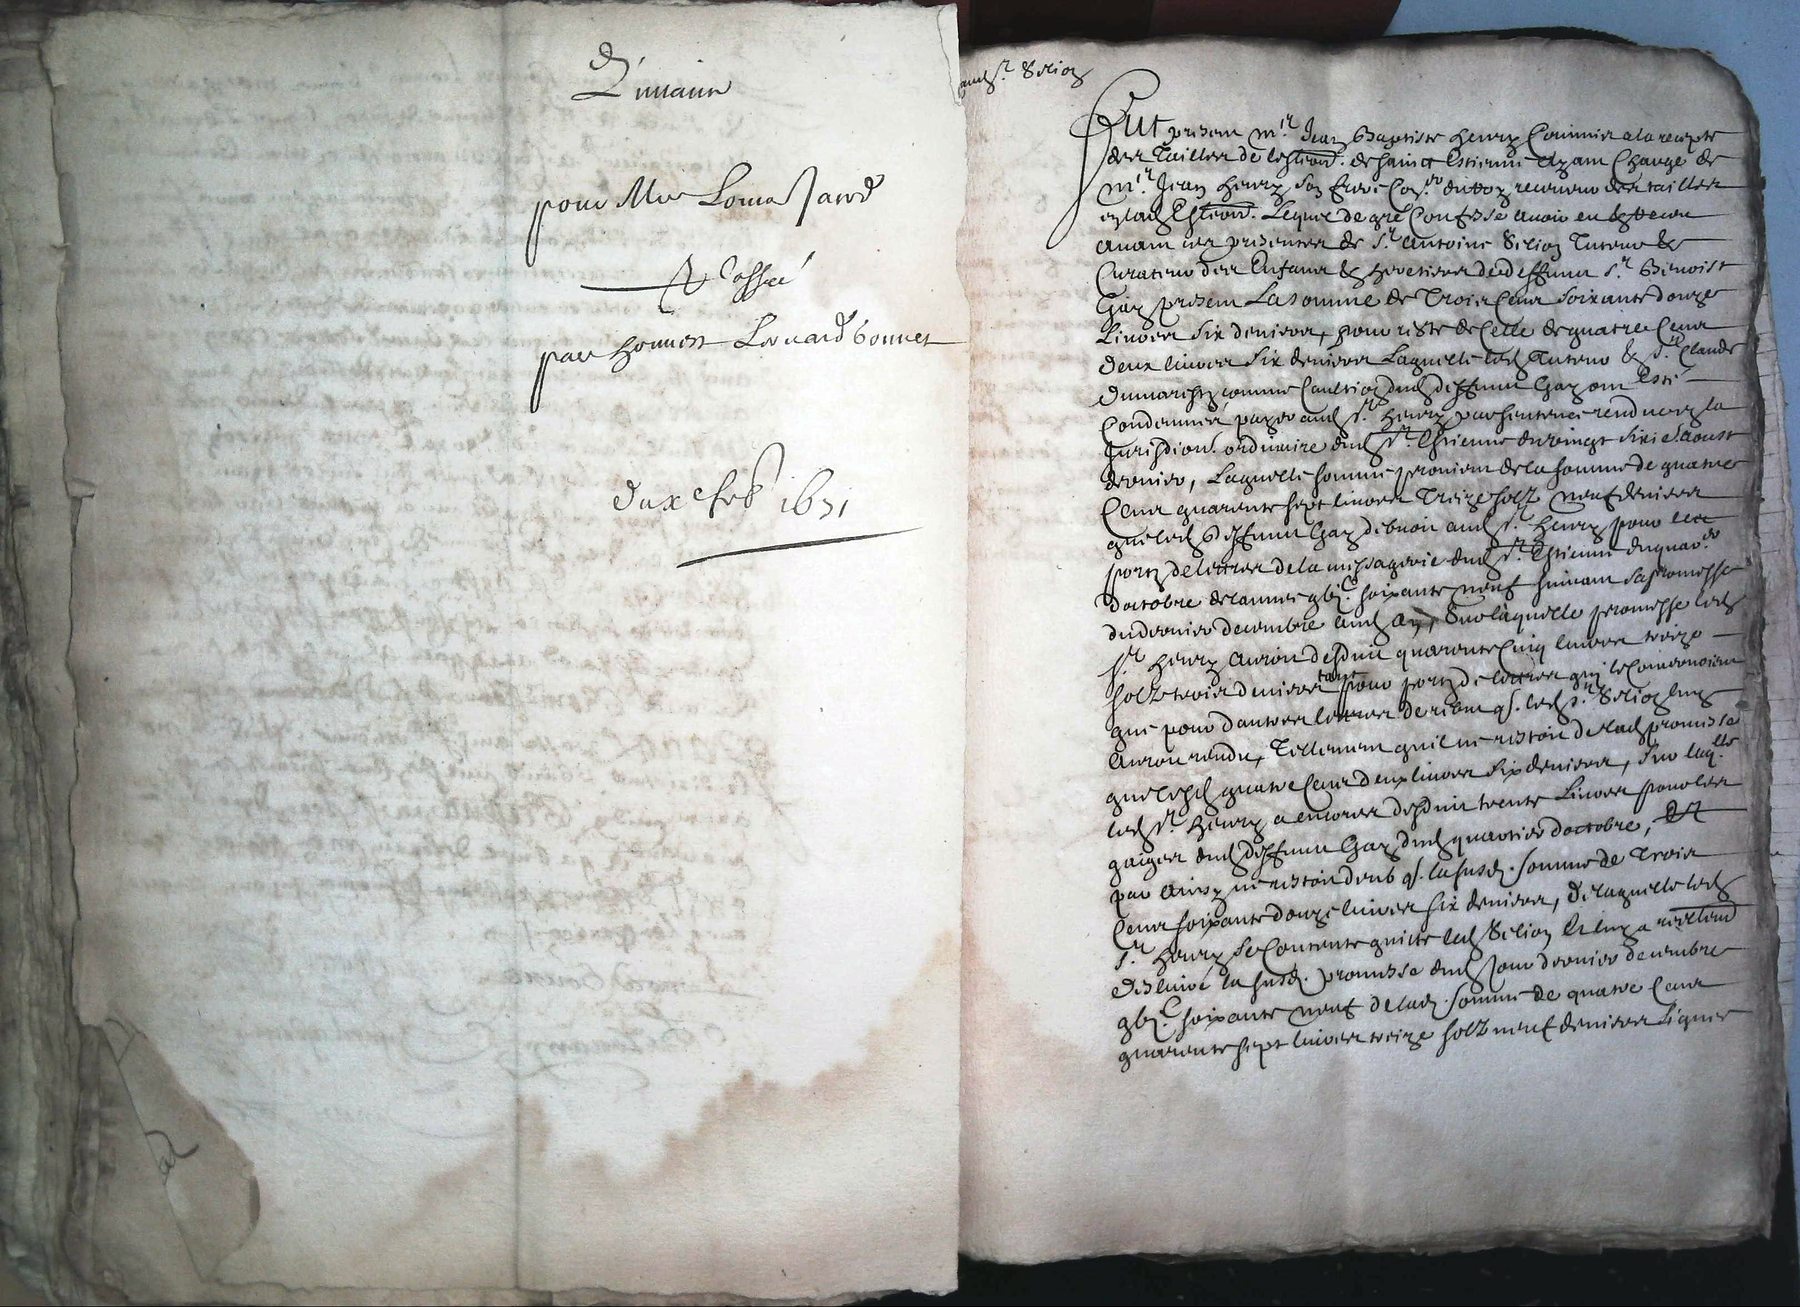 pour Mre Louis Jarod
par Honnest Leonard bonnet
Dux feb 1671
audt Sr Selion
Fut present mr Jean Baptiste Henry Commis a la recepte
des Tailles de leslection de sainct Estienne ayant Charge de
mr Jean Henry son frere Coner du Roy receveur des tailles
en lad Eslection. Lequel de gré Confesse avoir eu & receu
avant ces presentes de Sr Antoine Selion Tuteur &
Curateur des Enfans & heretiers dud deffunt Sr Benoist
Gay present La somme de Trois Cens soixante douze
Livres six deniers, pour reste de Celle de quatre Cens
deux livres six deniers Laquelle led Tuteur & Sr Claude
dumarestz comme Caution dud deffunt Gay ont esté
Condemnés payer aud Sr Henry par sentence rendue en la
Jurisdion ordinaire dud St Estienne du vingt sixie d'aoust
dernier, Laquelle somme provient de la somme de quatre
Cens quarente sept livres Treize solz neuf deniers
que led deffunt Gay debvoit aud Sr Henry pour les
portz de lettres de la messagerie dud St Estienne du quar.er
d'octobre de l'annee gbjC soixante neuf suivant sa promesse
du dernier decembre aud an, Sur laquelle promesse led
Sr Henry auroit desduit quarente Cinq livres treize
solz trois deniers tant pour portz de lettres qui le Concernoient
que pour d'autres lettres de rebut q. led Sr Selion luy
auroit rendu, Tellement qu'il ne restoit de lad promesse
que lesd quatre Cens deux livres six deniers, Sur laqlle
led Sr Henry a encores desduit trente Livres pour les
gaiges dud deffunt Gay dud quartier d'octobre, Et
par ainsy ne restoit deub q. la susd. somme de Trois
Cens soixante douze livres six deniers, De laquelle led
Sr Henry se Contente quitte led Selion Et luy a reellemt
deslivré la susd. promesse dud Jour dernier decembre
gbjC soixante neuf de lad. somme de quatre Cens
quarente sept livres treize solz neuf deniers Signée